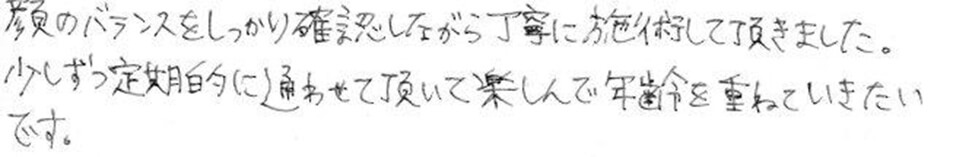 顔のバランスをしっかり確認しながら丁寧に施術して頂きました。
少しずつ定期的に通わせて頂いて楽しんで年齢を重ねていきたい
です。